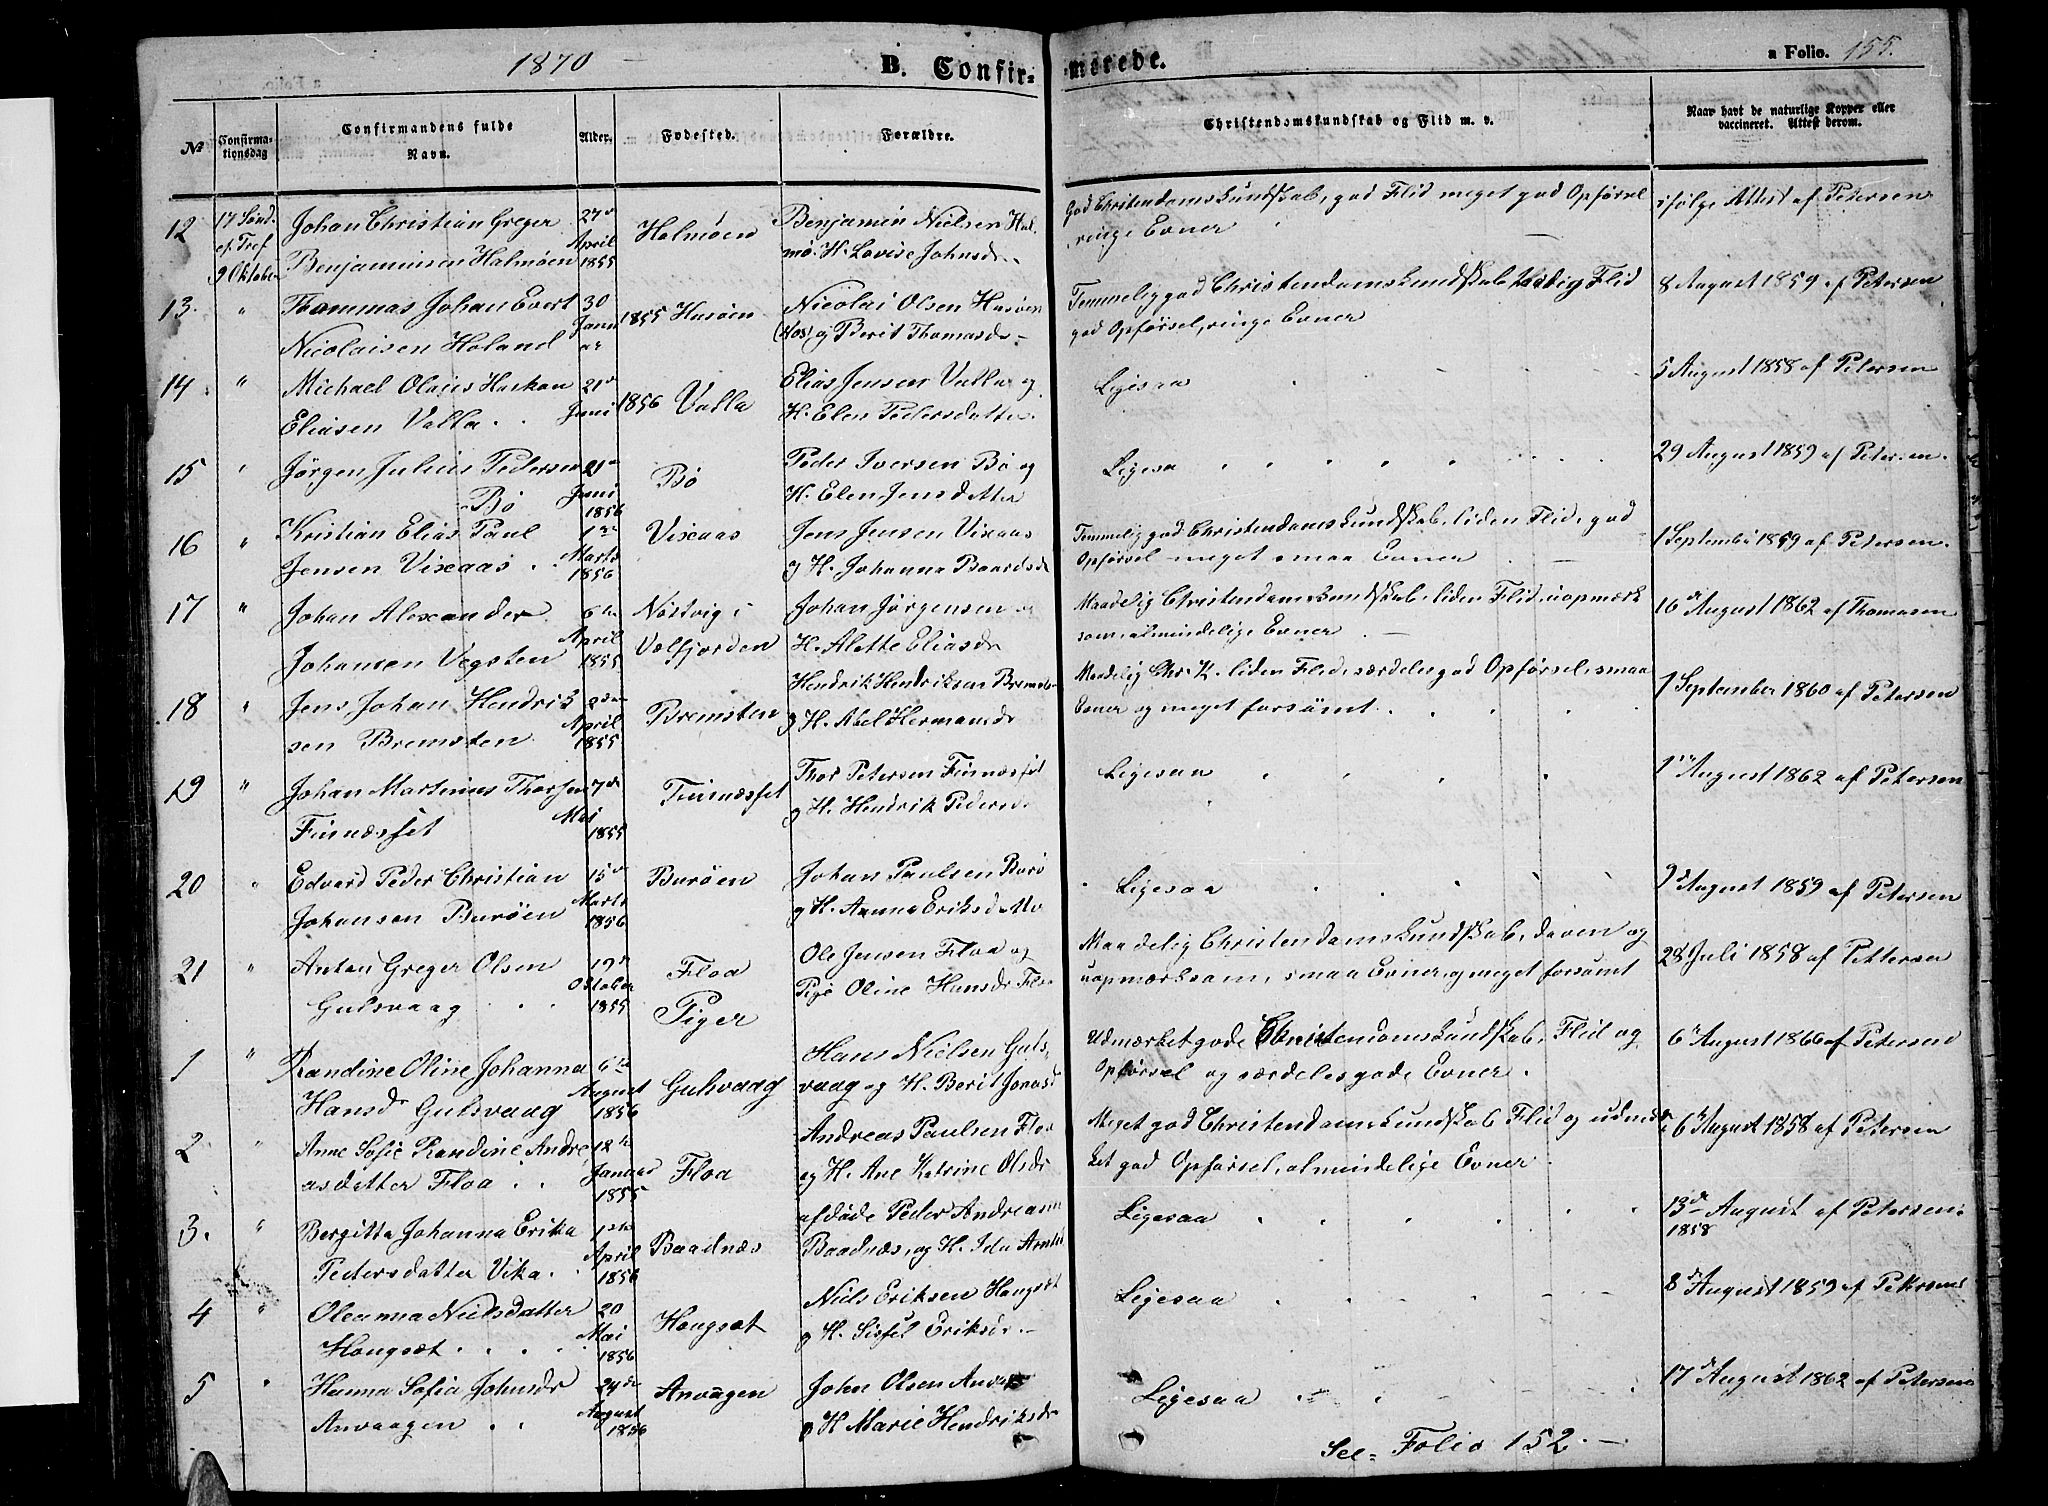 1870 —
B. Confir=
merede.
a Folio. 155.
No
Confirma-
tionsdag
Confirmandens fulde
Navn.
Alder.
Fødested.
Forældre.
Christendomskundskab og Flid m. v.
Naar havt de naturlige Kopper eller
vaccineret. Attest derom.
12
17 Sønd.
ef. Tref
9 Oktober
Johan Christian Greger
Benjaminsen Halmøen
27de
April
1855
Halmøen
Benjamin Nielsen Hal
mø. H. Lovise Johnsdr.
God Christendomskundskab, god Flid meget god Opførsel
ringe Evner
ifølge Attest af Petersen
13.
"
Thommas Johan Evert
Nicolaisen Holand
30
Janu
ar
1855
Husøen
Nicolai Olsen Husøen
og Berit Thomasdr -
Temmelig god Christendomskundskab Flid
god Opførsel, ringe Evner
8 August 1859 af Petersen
14
"
Michael Olaus Haakon
Eliasen Valla . .
21de
Juni
1856
Valla
Elias Jensen Valla og
H. Elen Pedersdatter
Ligesaa
5 August 1858 af Petersen
15
"
Jørgen Julius Pedersen
Bø
21de
Juni
1856
Bø
Peder Iversen Bø og
H. Elen Jensdatter
Ligesaa
29 August 1859 af Petersen.
16
"
Kristian Elias Paul
Jensen Vixaas .
1ste
Marts
1856
Vixaas
Jens Jensen Vixaas
og H. Johanna Baardsdr
Temmelig god Christendomskundskab, liden Flid, god
Opførsel - meget smaa Evner
1 September 1859 af Petersen.
17
"
Johan Alexander
Johansen Vegsten
6te
April
1855
Nøstvig i
Velfjorden
Johan Jørgensen og
H. Alette Eliasdr
Maadelig Christendomskundskab, liden Flid, uopmærk
som, almindelige Evner -
16de August 1862 af Thomasen
18
"
Jens Johan Hendrik
sen Bremsten
2den
April
1855
Bremsten
Hendrik Hendriksen Bremst
og H. Abel Hermansdr
Maadelig Chr. K. liden Flid, særdeles god Opførsel, smaa
Evner og meget forsømt.
1 September 1860 af Petersen
19
"
Johan Martinus Thorsen
Finnæsset
7de
Mai
1855
Finnæsset
Thor Petersen Finnæsset
og H. Hendrik Pedersd.
Ligesaa
1ste August 1862 af Petersen
20
"
Edvard Peder Christian
Johansen Burøen
15de
Marts
1856
Burøen
Johan Paulsen Burø
og H. Anna Eriksdatter
Ligesaa
9de August 1859 af Petersen
21
"
Anton Greger Olsen
Gulsvaag
19de
Oktober
1855
Floa
Ole Jensen Floa og
Pige Oline Hansdr Floa
Maadelig Christendomskundskab, doven og
uopmærksom, smaa Evner, og meget forsømt
28 Juli 1858 af Pettersen
Piger
1
"
Randine Oline Johanna
Hansdr Gulsvaag
6te
August
1856
Gulsvaag
Hans Nielsen Guls
vaag og H. Berit Jonasd
Udmærket gode Christendomskundskab, Flid og
Opførsel og særdeles gode Evner.
6te August 1866 af Petersen
2
"
Anne Sofie Randine Andre
asdatter Floa . .
12te
Januar
1855
Floa
Andreas Paulsen Floa
og H. Ane Katrine Olsdr
Meget god Christendomskundskab Flid og udmær
ket god Opførsel, almindelige Evner.
6te August 1858 af Petersen
3.
"
Bergitta Johanna Erika
Pedersdatter Vika.
1ste
April
1856
Baadnæs
afdøde Peder Andreasen
Baadnæs, og H. Ida Arntsd
Ligesaa
13de August af Petersen
1858
4
"
Oleanna Nielsdatter
Hougsæt . . . .
20
Mai
1856
Hougsæt
Niels Eriksen Hougsæt
og H. Sissel Eriksdr.
Ligesaa
8de August 1859 af Petersen
5
"
Hanna Sofia Johnsdr
Anvaagen . .
24de
August
1856
Anvaagen
John Olsen Anvaag
og H Marie Hendriksdr
Ligesaa
17de August 1862 af Petersen
See= Folio 152. -